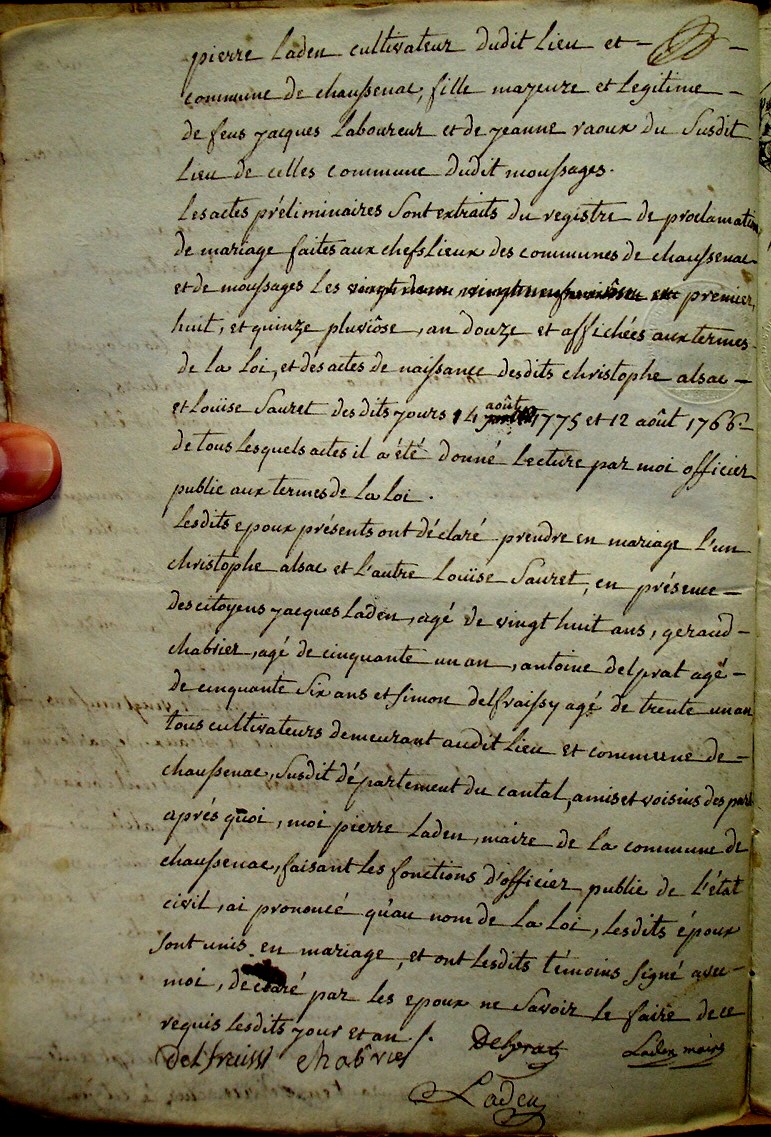 pierre Laden cultivateur dudit Lieu et -
commune de chaussenac, fille mazeure et Legitime -
de feus jacques Laboureur et de jeanne raoux du Susdit
Lieu de celles commune dudit moussages.
Les actes préliminaires Sont extraits du registre de proclamation
de mariage faites aux chefs Lieux des communes de chaussenac
et de moussages Les premier,
huit, et quinze pluviôse, an douze et affichées aux termes
de la Loi, et des actes de naissance desdits christophe alsac -
et Louïse Sauret desdits jours 14 août 1775 et 12 août 1766 -
de tous Lesquels actes il a été donné Lecture par moi officier
public aux termes de La Loi.
Lesdits epoux présents ont déclaré prendre en mariage L'un
christophe alsac et L'autre Louïse Sauret, en présence -
des citoyens jacques Laden, agé de vingt huit ans, geraud -
chabrier, agé de cinquante un an, antoine delprat agé -
de cinquante Six ans et Simon delfraissy agé de trente un an
tous cultivateurs demeurant audit Lieu et commune de -
chaussenac, Susdit département du cantal, amis et voisins des part
aprés quoi, moi pierre Laden, maire de La commune de
chaussenac, faisant Les fonctions d'officier public de L'état
civil, ai prononcé qu'au nom de La Loi, Lesdits époux
Sont unis en mariage, et ont Lesdits témoins Signé avec -
moi, déclaré par Les epoux ne Savoir Le faire de ce
requis Lesdits jour et an /.
Delfraissi chabrier Delprat Laden maire
Laden